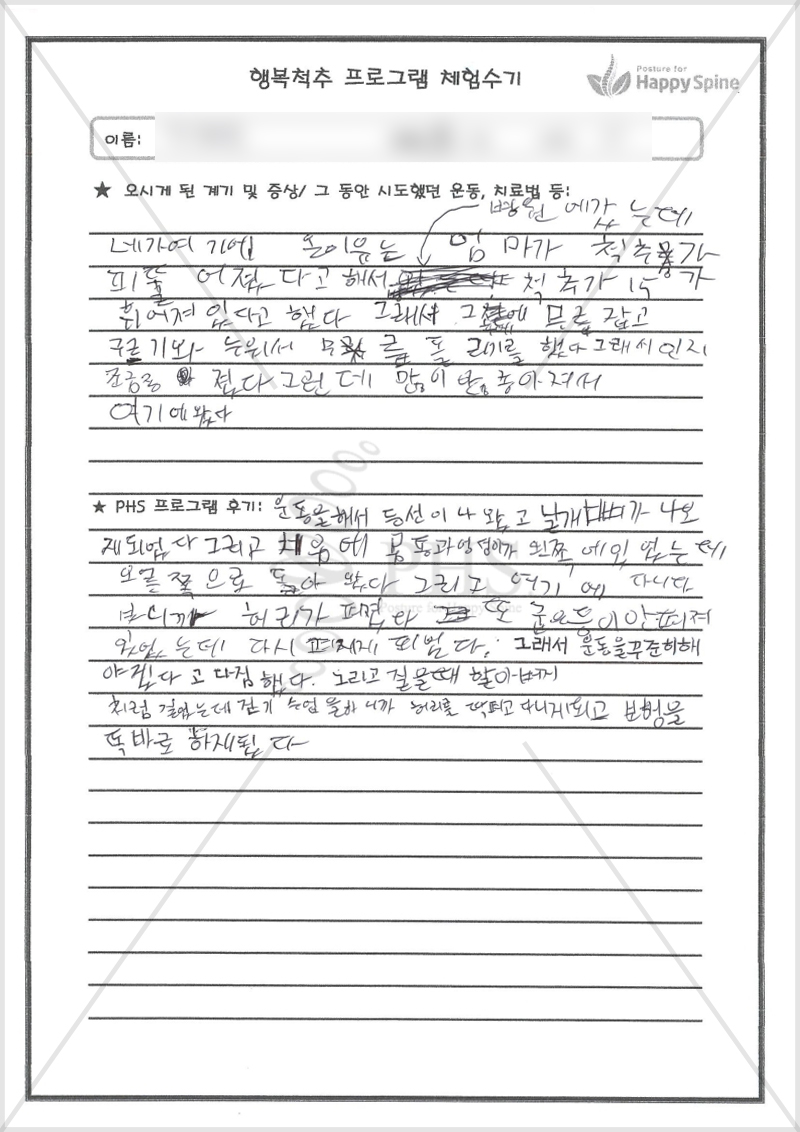 행복척추 프로그램 체험수기
Posture for
Happy Spine
이름:
★ 오시게 된 계기 및 증상/ 그 동안 시도했던 운동, 치료법 등:
병원 에갔 는데
네가여 기에 온이유는 엄 마가 척추뭉가
피뚤 어졌 다고 해서 척 추가 15 가
휘어져 있다고 했다 그래서 그 무릎 잡고
구르기와 누워서 무릎 돌 리기를 했다 그래서인지
조금은 졌다 그런 데 많이 안 좋아져서
여기에 왔다
★ PHS 프로그램 후기: 운동을해서 등선이 나 왔고 날개뼈가 나오
게되었다 그리고 처음 에 몸통과엉덩이가 왼쪽 에있 었는데
오른 쪽 으로 돌아 왔다 그리고 여기 에 다니다
보니까 허리가 펴졌 다 또 이안펴져
있었 는데 다시 펴지게 되었 다. 그래서 운동을꾸준히해
야겠다 고 다짐 했다. 그리고 걸을때 할아버지
처럼 걸었는데 걷기 수업 을하 니까 허리를 딱펴고 다니게되고 보행을
똑바로 하게됬 다
PHS
Posture for Happy Spine